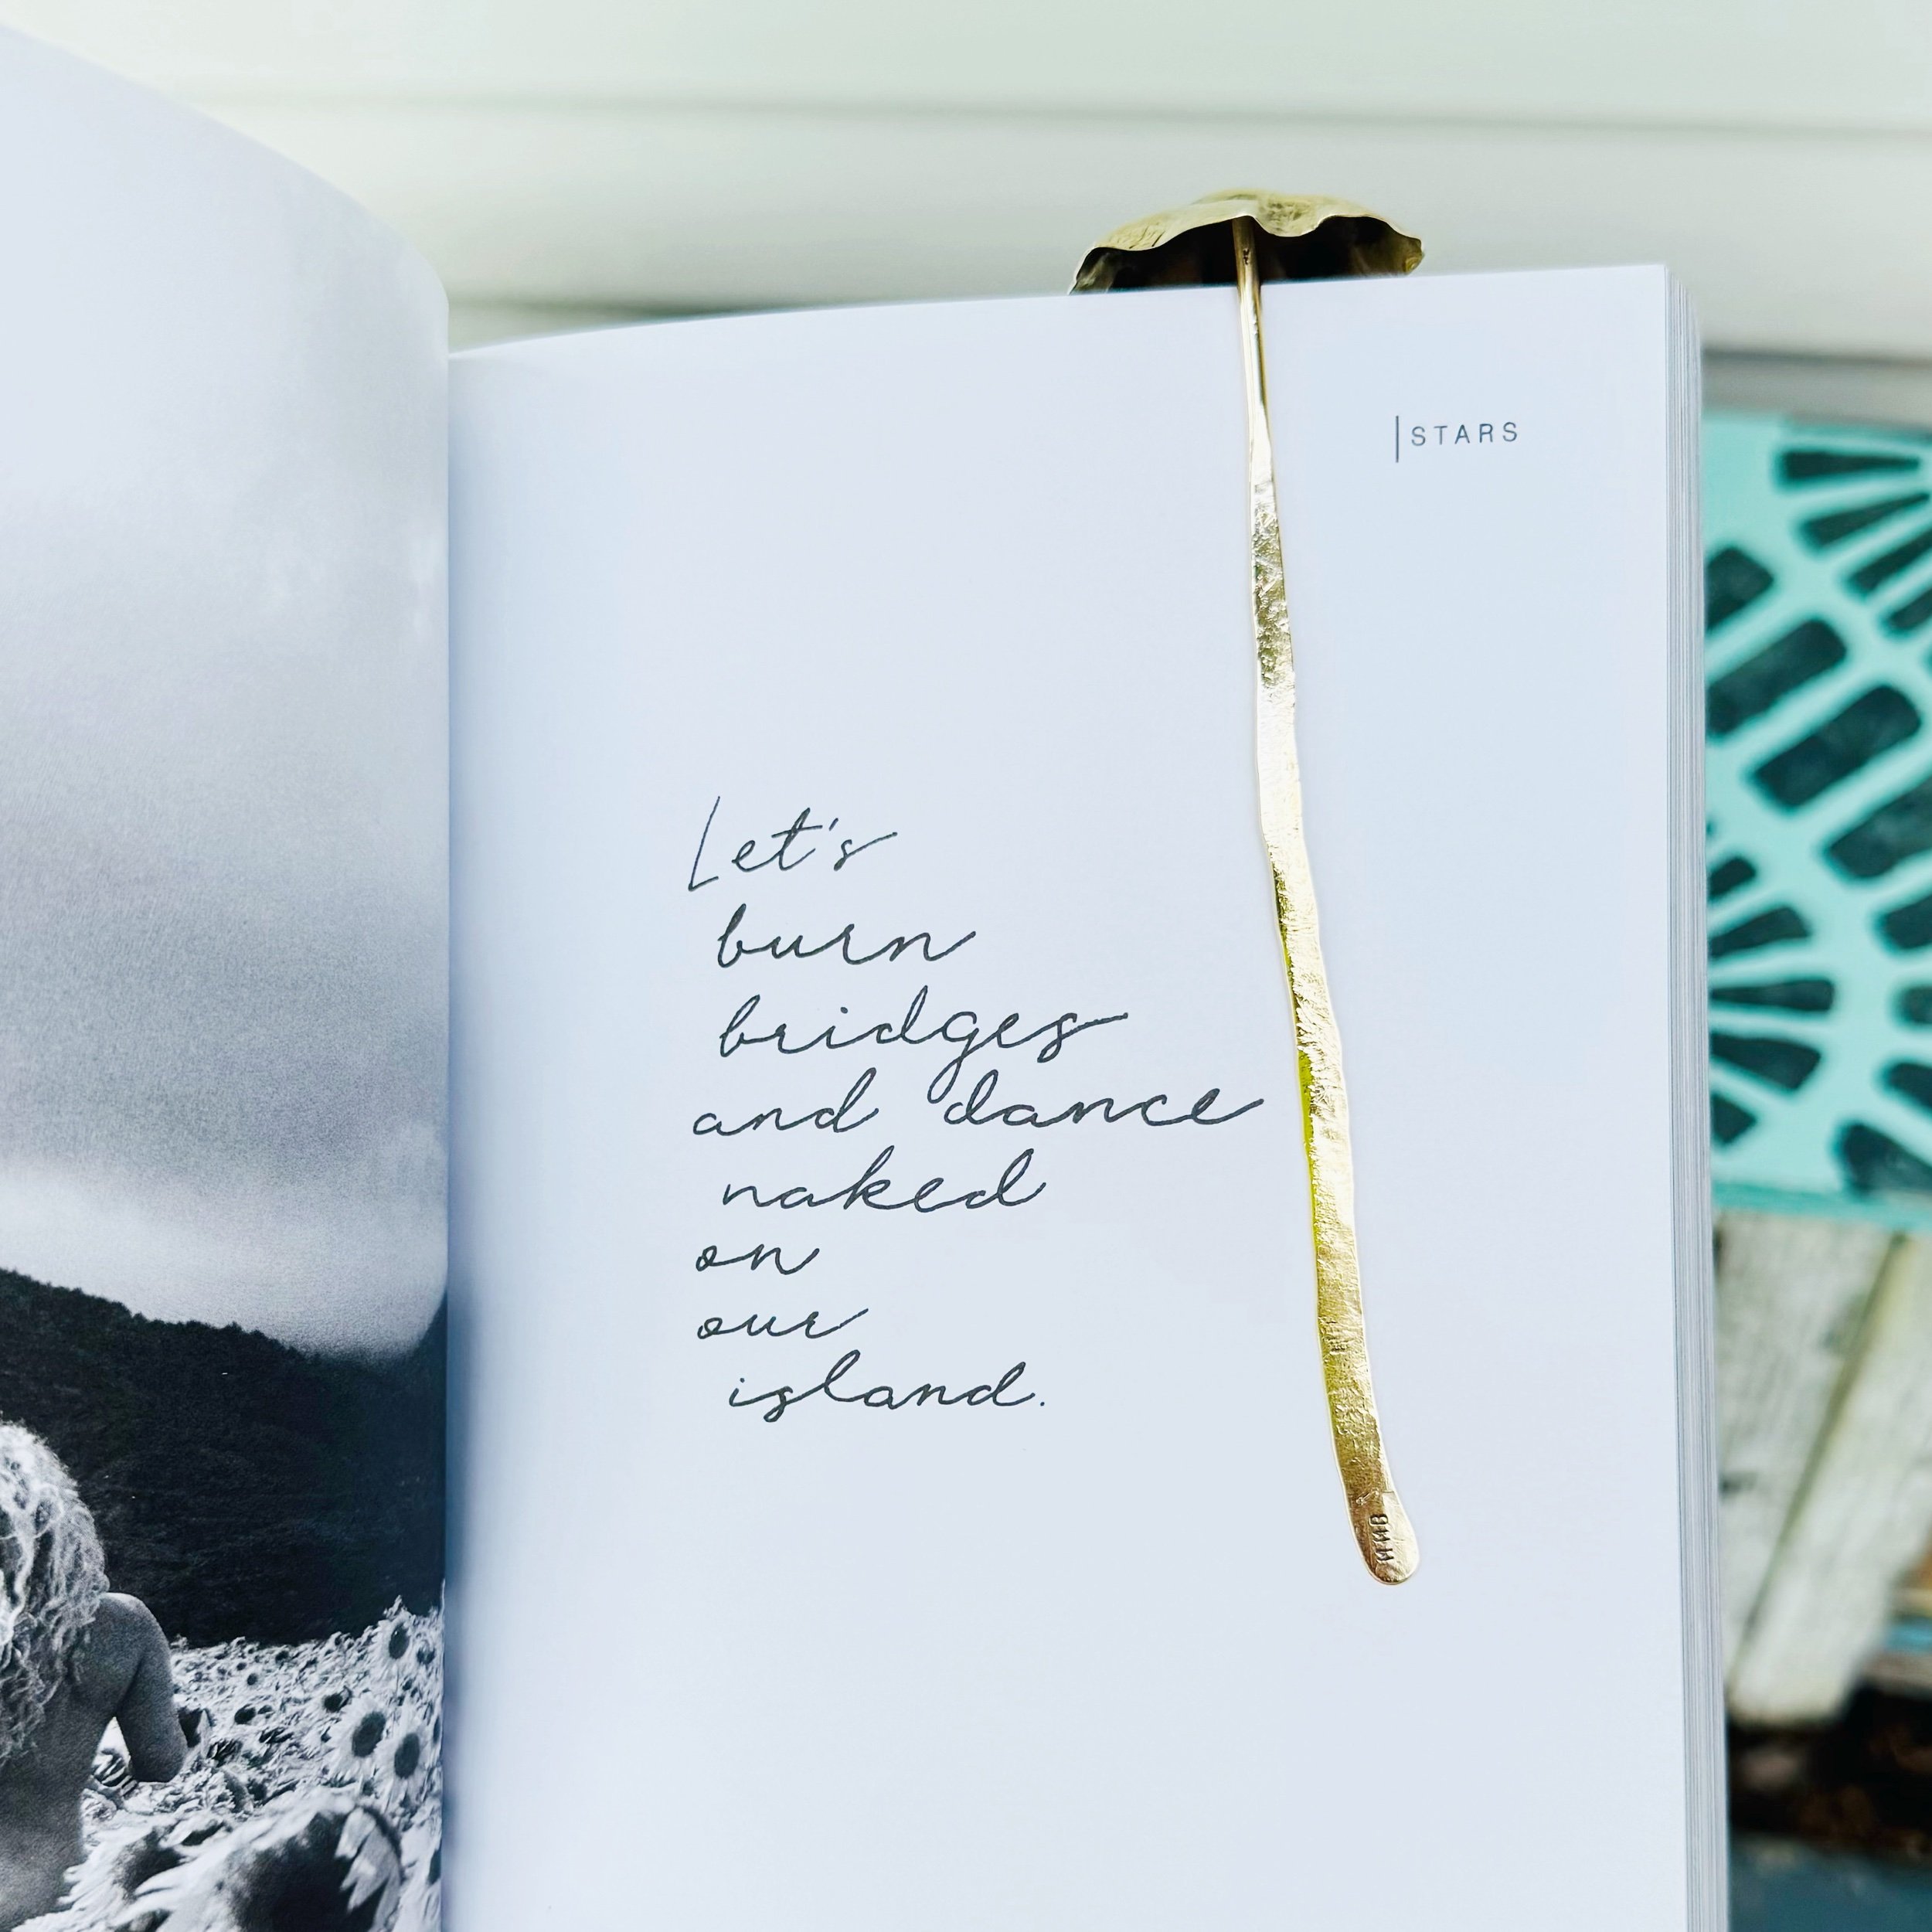 STARS
Let's
burn
bridges
and dance
naked
on
our
island.